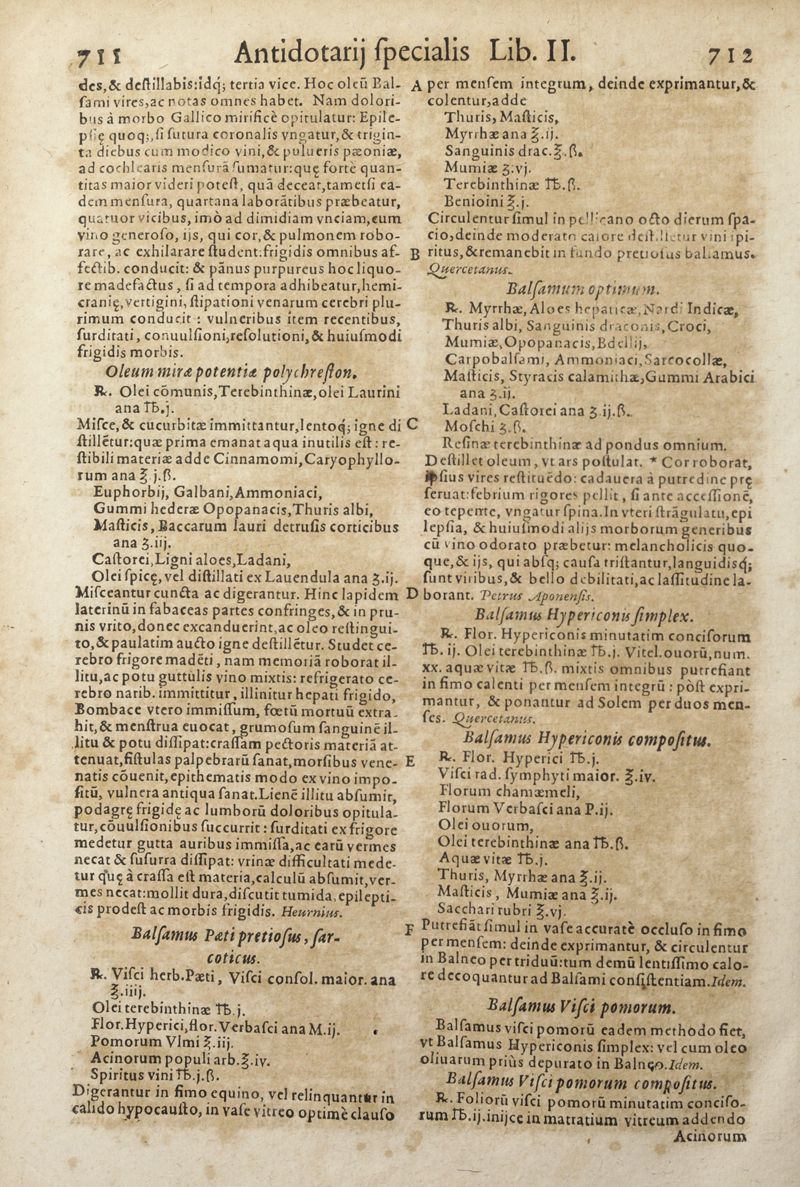 711 Antidotarij ſpecialis Lib. II. 712
des, & deſtillabis: idq; tertia vice. Hoc oleū Bal-
ſami vires, ac notas omnes habet. Nam dolori-
bus à morbo Gallico mirificè opitulatur: Epile-
pſię quoq;, ſi ſutura coronalis vngatur, & trigin-
ta diebus cum modico vini, & pulueris pæoniæ,
ad cochlearis menſurā ſumatur: quę fortè quan-
titas maior videri poteſt, quā deceat, tametſi ea-
dem menſura, quartana laborātibus præbeatur,
quatuor vicibus, imò ad dimidiam vnciam, cum
vino generoſo, ijs, qui cor, & pulmonem robo-
rare, ac exhilarare ſtudent: frigidis omnibus af-
fectib. conducit: & pānus purpureus hoc liquo-
re madefactus, ſi ad tempora adhibeatur, hemi-
cranię, vertigini, ſtipationi venarum cerebri plu-
rimum conducit: vulneribus item recentibus,
ſurditati, conuulſioni, reſolutioni, & huiuſmodi
frigidis morbis.
Oleum miræ potentiæ polychreſton.
℞. Olei cōmunis, Terebinthinæ, olei Laurini
ana ℔.j.
Miſce, & cucurbitæ immittantur, lentoq; igne di
ſtillētur: quæ prima emanat aqua inutilis eſt: re-
ſtibili materiæ adde Cinnamomi, Caryophyllo-
rum ana ℥ j.ß.
Euphorbij, Galbani, Ammoniaci,
Gummi hederæ Opopanacis, Thuris albi,
Maſticis, Baccarum lauri detruſis corticibus
ana ʒ.iij.
Caſtorei, Ligni aloes, Ladani,
Olei ſpicę, vel diſtillati ex Lauendula ana ʒ.ij.
Miſceantur cuncta ac digerantur. Hinc lapidem
laterinū in fabaceas partes confringes, & in pru-
nis vrito, donec excanduerint, ac oleo reſtingui-
to, & paulatim aucto igne deſtilletur. Studet ce-
rebro frigore madēti, nam memoriā roborat il-
litu, ac potu guttulis vino mixtis: refrigerato ce-
rebro narib. immittitur, illinitur hepati frigido,
Bombace vtero immiſſum, fœtū mortuū extra-
hit, & menſtrua euocat, grumoſum ſanguinē il-
litu & potu diſſipat: craſſam pectoris materiā at-
tenuat, fiſtulas palpebrarū ſanat, morſibus vene-
natis cōuenit, epithematis modo ex vino impo-
ſitū, vulnera antiqua ſanat. Lienē illitu abſumit,
podagrę frigidę ac lumborū doloribus opitula-
tur, cōuulſionibus ſuccurrit: ſurditati ex frigore
medetur gutta auribus immiſſa, ac earū vermes
necat & ſuſurra diſſipat: vrinæ difficultati mede-
tur quę à craſſa eſt materia, calculū abſumit, ver-
mes necat: mollit dura, diſcutit tumida, epilepti-
cis prodeſt ac morbis frigidis. Heurnius.
Balſamus Pæti pretioſus, ſar-
coticus.
℞. Viſci herb. Pæti, Viſci conſol. maior. ana
℥.iiij.
Olei terebinthinæ ℔.j.
Flor. Hyperici, flor. Verbaſci ana M.ij.
Pomorum Vlmi ℥.iij.
Acinorum populi arb. ℥.iv.
Spiritus vini ℔.j.ß.
Digerantur in fimo equino, vel relinquantur in
calido hypocauſto, in vaſe vitreo optimè clauſo
A per menſem integrum, deinde exprimantur, &
colentur, adde
Thuris, Maſticis,
Myrrhæ ana ℥.ij.
Sanguinis drac. ℥.ß.
Mumiæ ʒ.vj.
Terebinthinæ ℔.ß.
Benioini ℥.j.
Circulentur ſimul in pellicano octo dierum ſpa-
cio, deinde moderato calore deſtilletur vini ſpi-
B ritus, & remanebit in fundo pretioſus balſamus.
Quercetanus.
Balſamum optimum.
℞. Myrrhæ, Aloes hepaticæ, Nardi Indicæ,
Thuris albi, Sanguinis draconis, Croci,
Mumiæ, Opopanacis, Bdellij,
Carpobalſami, Ammoniaci, Sarcocollæ,
Maſticis, Styracis calamithæ, Gummi Arabici
ana ʒ.ij.
Ladani, Caſtorei ana ʒ.ij.ß.
C Moſchi ʒ.ß.
Reſinæ terebinthinæ ad pondus omnium.
Deſtillet oleum, vt ars poſtulat. * Corroborat,
ipſius vires reſtituēdo: cadauera à putredine prę
ſeruat: febrium rigores pellit, ſi ante acceſſionē,
eo tepente, vngatur ſpina. In vteri ſtrāgulatu, epi
lepſia, & huiuſmodi alijs morborum generibus
cū vino odorato præbetur: melancholicis quo-
que, & ijs, qui abſq; cauſa triſtantur, languidisq;
ſunt viribus, & bello debilitati, ac laſſitudine la-
D borant. Petrus Aponenſis.
Balſamus Hypericonis ſimplex.
℞. Flor. Hypericonis minutatim conciſorum
℔. ij. Olei terebinthinæ ℔.j. Vitel. ouorū, num.
xx. aquæ vitæ ℔.ß. mixtis omnibus putrefiant
in fimo calenti per menſem integrū: pòſt expri-
mantur, & ponantur ad Solem per duos men-
ſes. Quercetanus.
Balſamus Hypericonis compoſitus.
E ℞. Flor. Hyperici ℔.j.
Viſci rad. ſymphyti maior. ℥.iv.
Florum chamæmeli,
Florum Verbaſci ana P.ij.
Olei ouorum,
Olei terebinthinæ ana ℔.ß.
Aquæ vitæ ℔.j.
Thuris, Myrrhæ ana ℥.ij.
Maſticis, Mumiæ ana ℥.ij.
Sacchari rubri ℥.vj.
F Putrefiāt ſimul in vaſe accuratè occluſo in fimo
per menſem: deinde exprimantur, & circulentur
in Balneo per triduū: tum demū lentiſſimo calo-
re decoquantur ad Balſami conſiſtentiam. Idem.
Balſamus Viſci pomorum.
Balſamus viſci pomorū eadem methodo fiet,
vt Balſamus Hypericonis ſimplex: vel cum oleo
oliuarum priùs depurato in Balneo. Idem.
Balſamus Viſci pomorum compoſitus.
℞. Foliorū viſci pomorū minutatim conciſo-
rum ℔.ij. inijce in matratium vitreum addendo
Acinorum